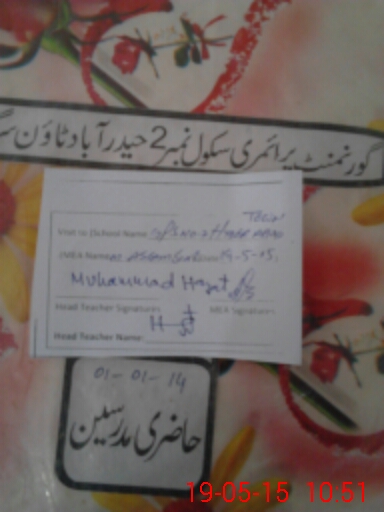 گورنمنٹ پرائمری سکول نمبر 2 حیدر آباد ٹاؤن
Town
Visit to (School Name)
(MEA Name) 19-5-15.
Muhammad Hayat
Head Teacher Signature: MEA Signature:
Head Teacher Name:
01-01-14
حاضری مدرسین
19-05-15 10:51